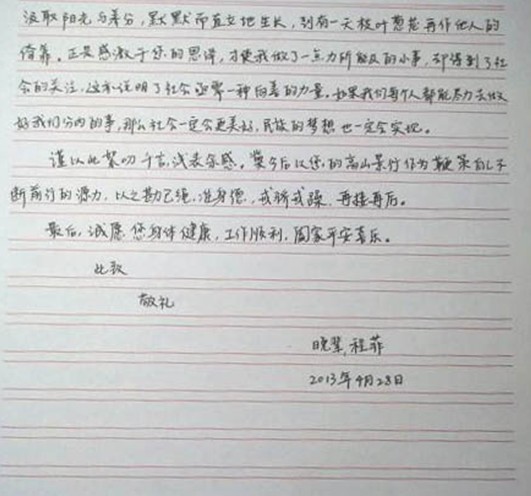 汲取阳光与养分，默默而直立地生长，到有一天枝叶葱茏再作他人的
倚靠。正是感激于您的恩泽，才使我做了一点力所能及的小事，却得到了社
会的关注，这本说明了社会凝聚一种向善的力量。如果我们每个人都能尽力去做
好我们分内的事，那么社会一定会更美好，民族的梦想也一定会实现。
谨以此絮叨千言，浅表余感。冀今后以您的高山景行作为鞭策自己不
断前行的源力，以之勘己绳，准身德，戒骄戒躁，再接再厉。
最后，诚愿您身体健康，工作顺利，阖家平安喜乐。
此致
敬礼
晚辈，程菲
2013年4月28日